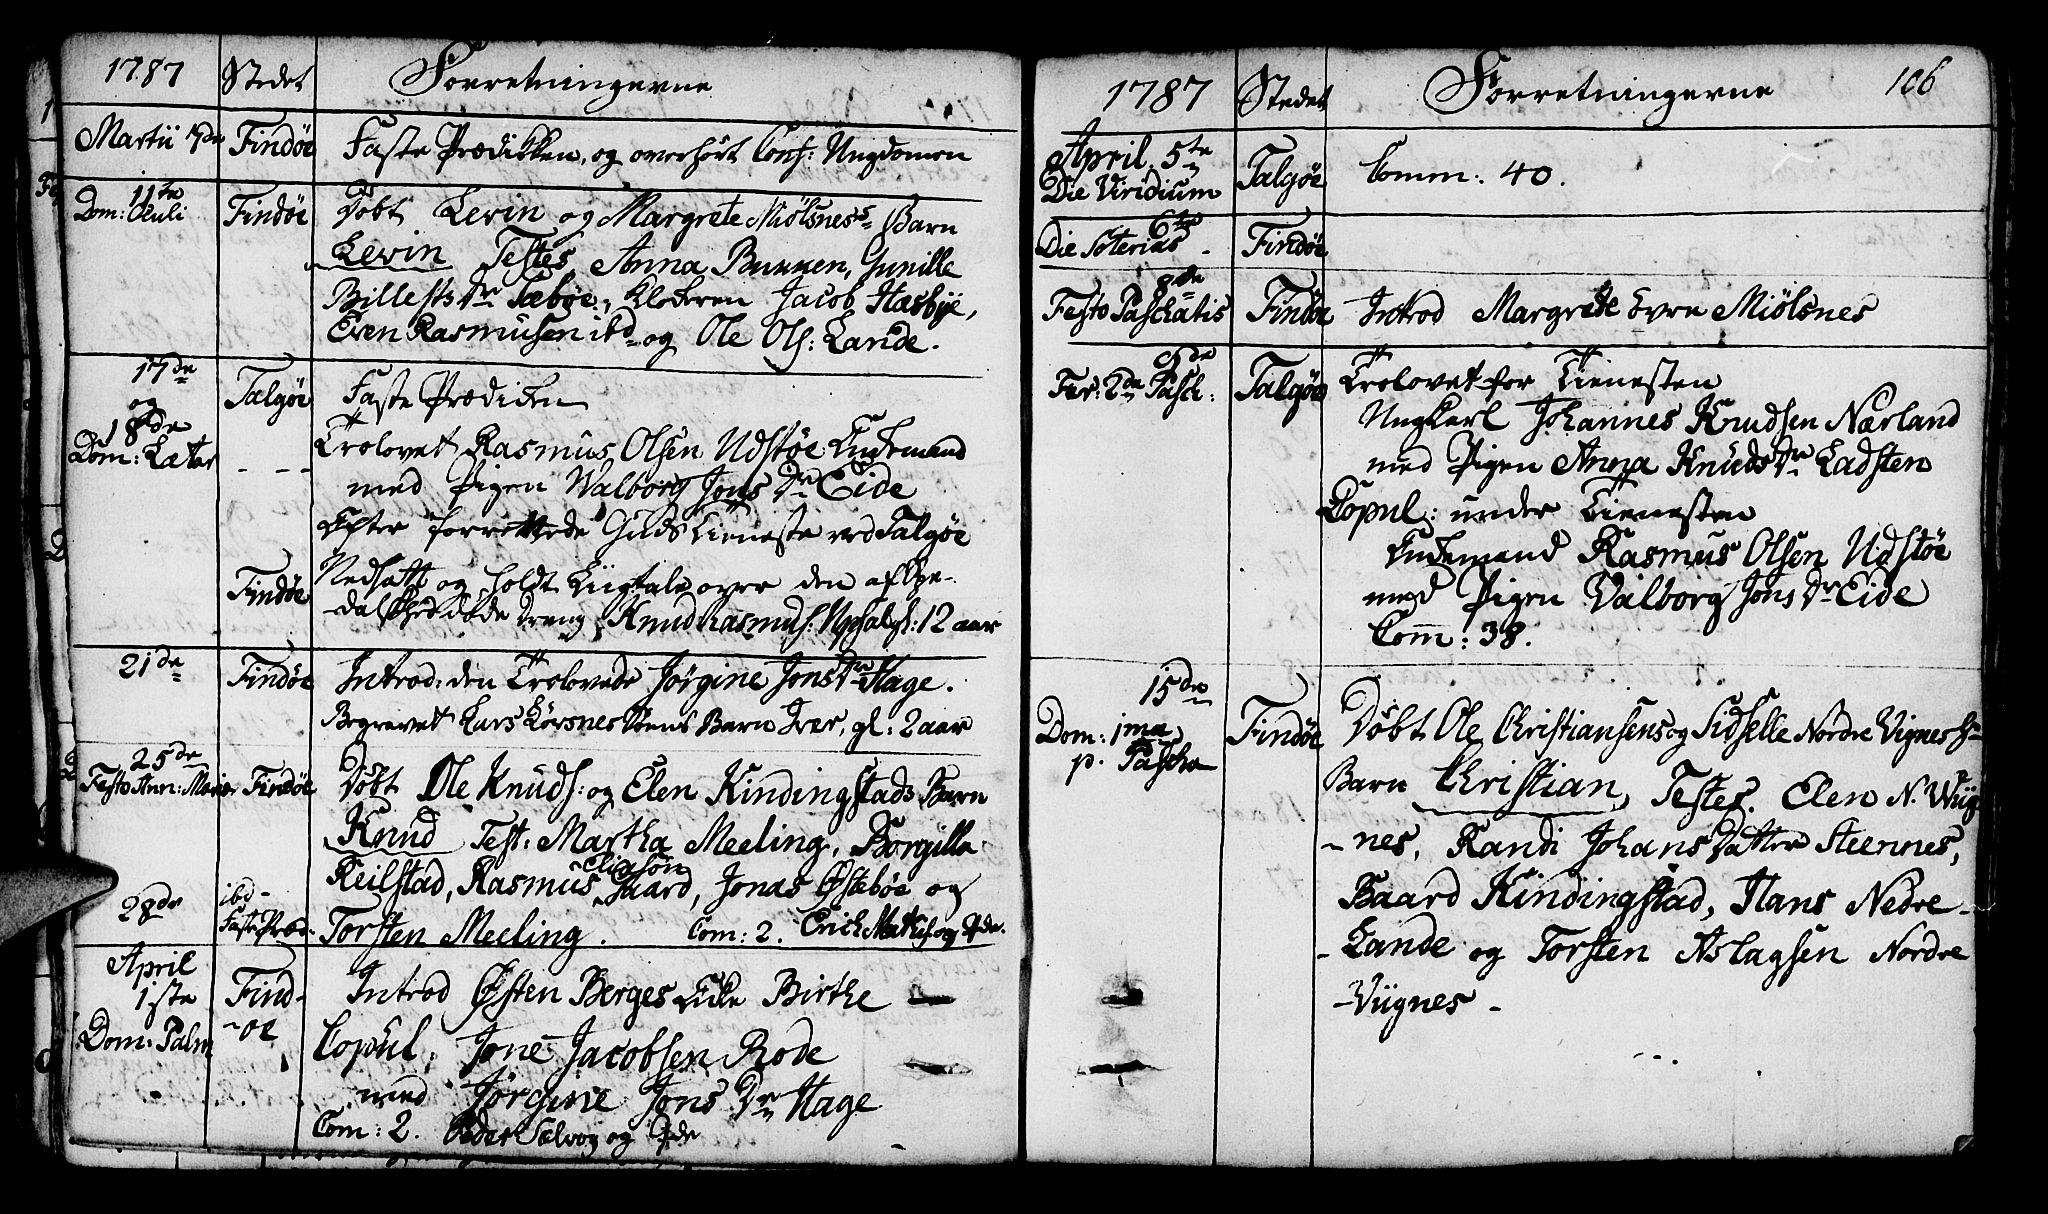 1787 Stedet Forretningerne
Martii 7de Findøe Faste Prædikken, og overhørt Conf: Ungdomen
11te
Dom: Oculi Findøe Døbt Levin og Margrete Miølsnes's Barn
Levin Testes Anna Bunken, Gunille
Billests Dr Sæbøe, Klokeren Jacob Hæsbye,
Even Rasmusen ibd og Ole Ols: Lande.
17de Talgøe Faste Prædiken
og
18de
Dom: Lætar - - - Trolovet Rasmus Olsen Udstøe Enkemand
med Pigen Walborg Jons Dr Eide
Efter forrettede Guds Tieneste ved Talgøe
Findøe Nedsatt og holdt Liigtale over den
Dreng Knud Rasmus: 12 aar
21de Findøe Introd: den Trolovede Jørgine Jons Dr Hage.
Begravet Lars Lørsnes Søens Barn Iver, gl: 2 aar
25de
Festo Ann: Mariæ Findøe Døbt Ole Knuds: og Elen Kindingstads Barn
Knud Test: Martha Meeling, Borgilla
Eliasøn
Reilstad, Rasmus Gaard, Jonas Østebøe og
28de ibd Faste Præd- Torsten Meeling. Com: 2. Erich og
April
1ste Find- Introd Østen Berges Enke Birthe
-oe
Dom: Palm Copul: Jone Jacobsen Rode
med Jørgine Jons Dr Hage
Com: 2. Peder Sælvog og
1787 Stedet Forretningerne 106
April 5te Talgøe Comm: 40.
Die Viridium
6te
Die Soterias - Findøe
8de
Festo Paschatis Findøe Introd Margrete Øvre Miølsnes
9de
Fer: 2de Pasch: Talgøe Trolovet for Tienesten
Ungkarl Johannes Knudsen Nærland
med Pigen Anna Knuds Dr Ladsten
Copul: under Tienesten
Enkemand Rasmus Olsen Udstøe
med Pigen Valborg Jons Dr Eide
Com: 38.
15de
Dom: 1ma Findøe Døbt Ole Christiansens og Sidselle Nordre Vignes's
p. Pascha Barn Christian, Testes. Elen N. Wiig
-nes, Randi Johans Datter Steennes,
Baard Kindingstad, Hans Nedre-
-Lande og Torsten Aslagsen Nordre
-Viignes -